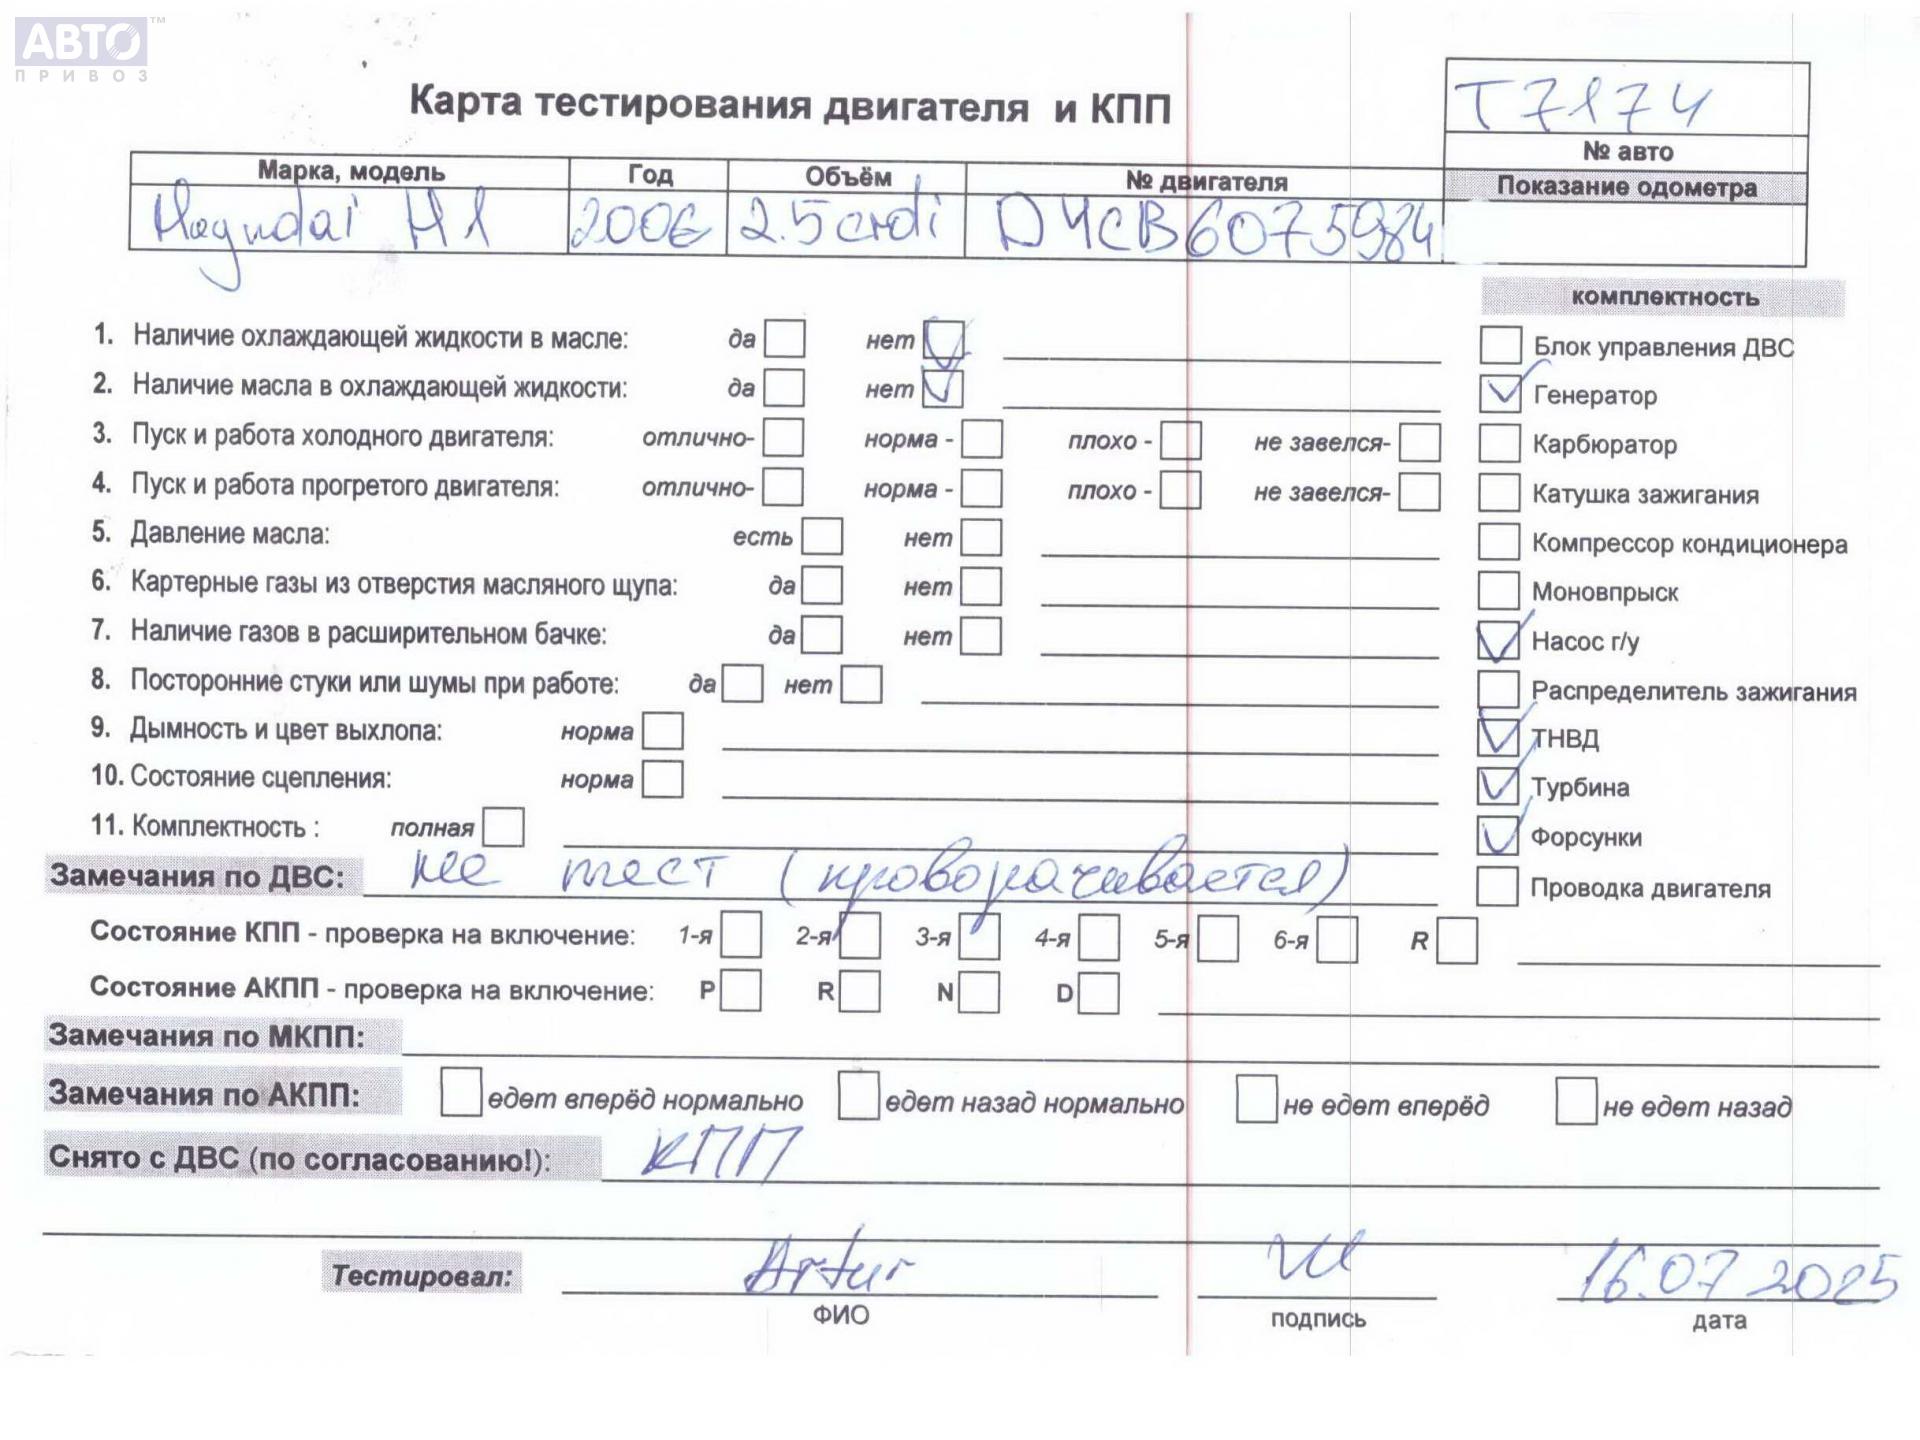 АВТО™
ПРИВОЗ
Карта тестирования двигателя и КПП
Т7174
№ авто
Марка, модель Год Объём № двигателя Показание одометра
Hayndai H1 2006 2.5 crdi D4CB6075984
комплектность
1. Наличие охлаждающей жидкости в масле: да нет
Блок управления ДВС
2. Наличие масла в охлаждающей жидкости: да нет
Генератор
3. Пуск и работа холодного двигателя: отлично- норма - плохо - не завелся-
Карбюратор
4. Пуск и работа прогретого двигателя: отлично- норма - плохо - не завелся-
Катушка зажигания
5. Давление масла: есть нет
Компрессор кондиционера
6. Картерные газы из отверстия масляного щупа: да нет
Моновпрыск
7. Наличие газов в расширительном бачке: да нет
Насос г/у
8. Посторонние стуки или шумы при работе: да нет
Распределитель зажигания
9. Дымность и цвет выхлопа: норма
ТНВД
10. Состояние сцепления: норма
Турбина
11. Комплектность : полная
Форсунки
Замечания по ДВС: не тест (проворачивается)
Проводка двигателя
Состояние КПП - проверка на включение: 1-я 2-я 3-я 4-я 5-я 6-я R
Состояние АКПП - проверка на включение: P R N D
Замечания по МКПП:
Замечания по АКПП: едет вперёд нормально едет назад нормально не едет вперёд не едет назад
Снято с ДВС (по согласованию!): КПП
Тестировал: Artur 16.07 2025
ФИО подпись дата